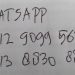 ATSAPP
12 9099 56
13 8830 8